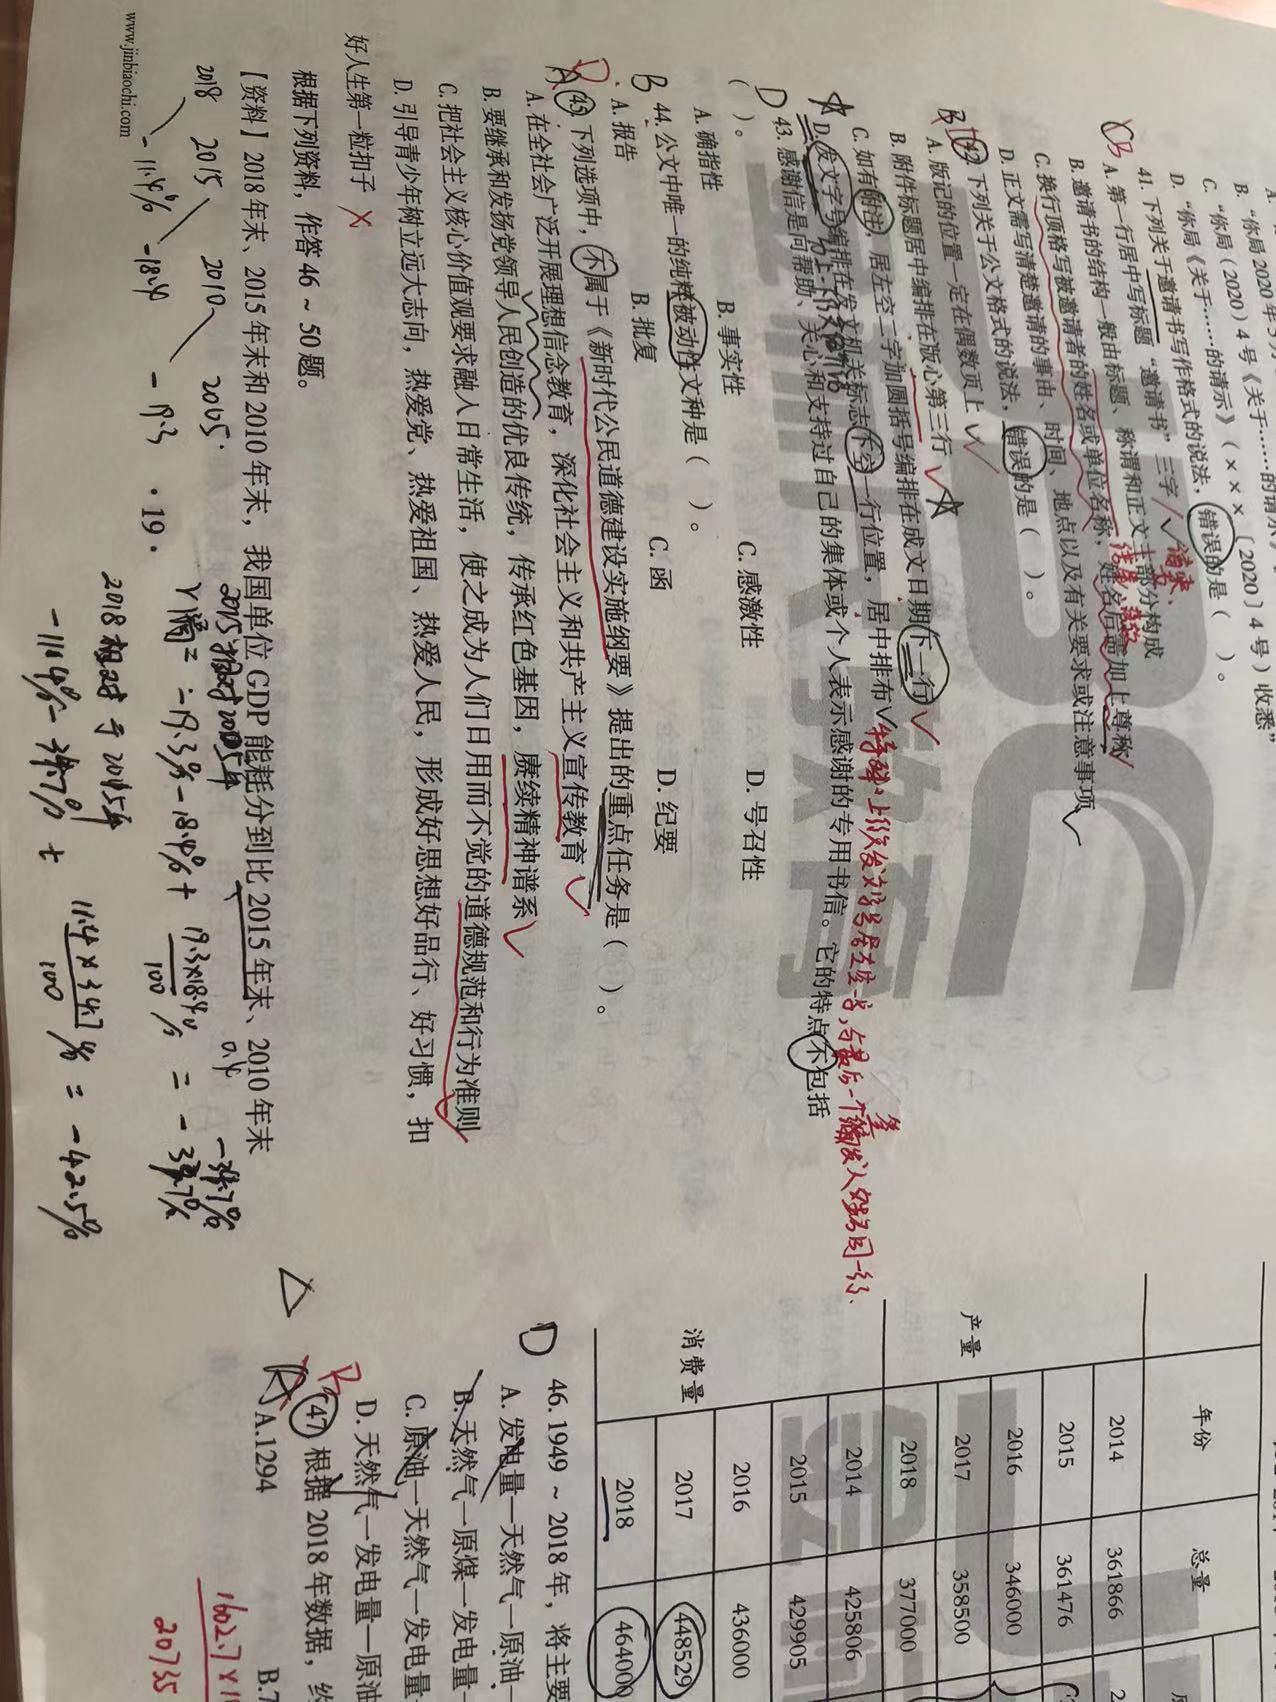 B. “你局 2020 年
C. “你局（2020）4 号《关于……的请示
D. “你局《关于……的请示》（×××〔2020〕4 号）收悉”
41. 下列关于邀请书写作格式的说法，错误的是（　　）。
A. 第一行居中写标题 “邀请书” 三字
B. 邀请书的结构一般由标题、称谓和正文三部分构成
C. 换行顶格写被邀请者的姓名或单位名称，姓名后需加上尊称
D. 正文需写清楚邀请的事由、时间、地点以及有关要求或注意事项
42. 下列关于公文格式的说法，错误的是（　　）。
A. 版记的位置一定在偶数页上
B. 附件标题居中编排在版心第三行
C. 如有附注，居左空二字加圆括号编排在成文日期下一行
D. 发文字号编排在发文机关标志下空一行位置，居中排布
特殊：上行文发文字号居左空一字，与最后一个签发人姓名同一行、
D 43. 感谢信是向帮助、关心和支持过自己的集体或个人表示感谢的专用书信。它的特点不包括
（　　）。
A. 确指性　B. 事实性　C. 感激性　D. 号召性
B 44. 公文中唯一的纯粹被动性文种是（　　）。
A. 报告　B. 批复　C. 函　D. 纪要
45. 下列选项中，不属于《新时代公民道德建设实施纲要》提出的重点任务是（　　）。
A. 在全社会广泛开展理想信念教育，深化社会主义和共产主义宣传教育
B. 要继承和发扬党领导人民创造的优良传统，传承红色基因，赓续精神谱系
C. 把社会主义核心价值观要求融入日常生活，使之成为人们日用而不觉的道德规范和行为准则
D. 引导青少年树立远大志向，热爱党、热爱祖国、热爱人民，形成好思想好品行、好习惯，扣
好人生第一粒扣子
根据下列资料，作答 46 ~ 50 题。
【资料】2018 年末、2015 年末和 2010 年末，我国单位 GDP 能耗分到比 2015 年末、2010 年末
2018　2015　2010　2005
-11.4%　-18.4　-19.3
2015相对2005年　-34.7%
= -19.3% - 18.4% + 19.3×18.4/100 % = -34.7%
2018 相对于 2005年
-11.4% - 34.7% + 11.4×34.7/100 % = -42.5%
www.jinbiaochi.com
年份　总量
产量
2014　361866
2015　361476
2016　346000
2017　358500
2018　377000
消费量
2014　425806
2015　429905
2016　436000
2017　448529
2018　464000
D 46. 1949 ~ 2018 年，将主要
A. 发电量—天然气—原油—
B. 天然气—原煤—发电量—
C. 原油—天然气—发电量
D. 天然气—发电量—原油
47 根据 2018 年数据，约
A.1294　B.7
20735